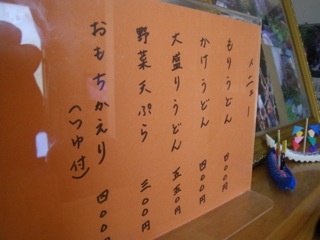 メニュー
もりうどん 四〇〇円
かけうどん 四〇〇円
大盛りうどん 五五〇円
野菜天ぷら 三〇〇円
おもちかえり 四〇〇円
(つゆ付)